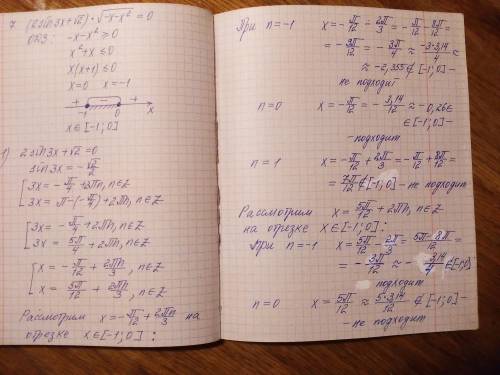 7 (2sin3x+√2)·√-x-x² = 0
ОДЗ: -x-x² ≥ 0
x²+x ≤ 0
x(x+1) ≤ 0
x=0 x=-1
+ - + -1 0 x
x∈[-1;0]
1) 2sin3x+√2=0
sin3x = -√2/2
[3x = -π/4 + 2πn, n∈Z
3x = π-(-π/4)+2πn, n∈Z
[3x = -π/4 + 2πn, n∈Z
3x = 5π/4 + 2πn, n∈Z
[x = -π/12 + 2πn/3, n∈Z
x = 5π/12 + 2πn/3, n∈Z
Рассмотрим x = -π/12 + 2πn/3 на
отрезке x∈[-1;0]:
При n=-1 x = -π/12 - 2π/3 = -π/12 - 8π/12 =
= -9π/12 = -3π/4 ≈ -3·3,14/4 ≈
≈ -2,355∉[-1;0] -
не подходит
n=0 x = -π/12 = -3,14/12 ≈ -0,26∈
∈[-1;0] -
-подходит
n=1 x = -π/12 + 2π/3 = -π/12 + 8π/12 =
= 7π/12 ∉[-1;0] - не подходит
Рассмотрим x = 5π/12 + 2πn, n∈Z
на отрезке x∈[-1;0]:
При n=-1 x = 5π/12 - 2π/3 = 5π-8π/12 =
= -3π/12 ≈ -3,14/4 ∈[-1;0]-
подходит
n=0 x = 5π/12 ≈ 5·3,14/12 ∉[-1;0] -
- не подходит